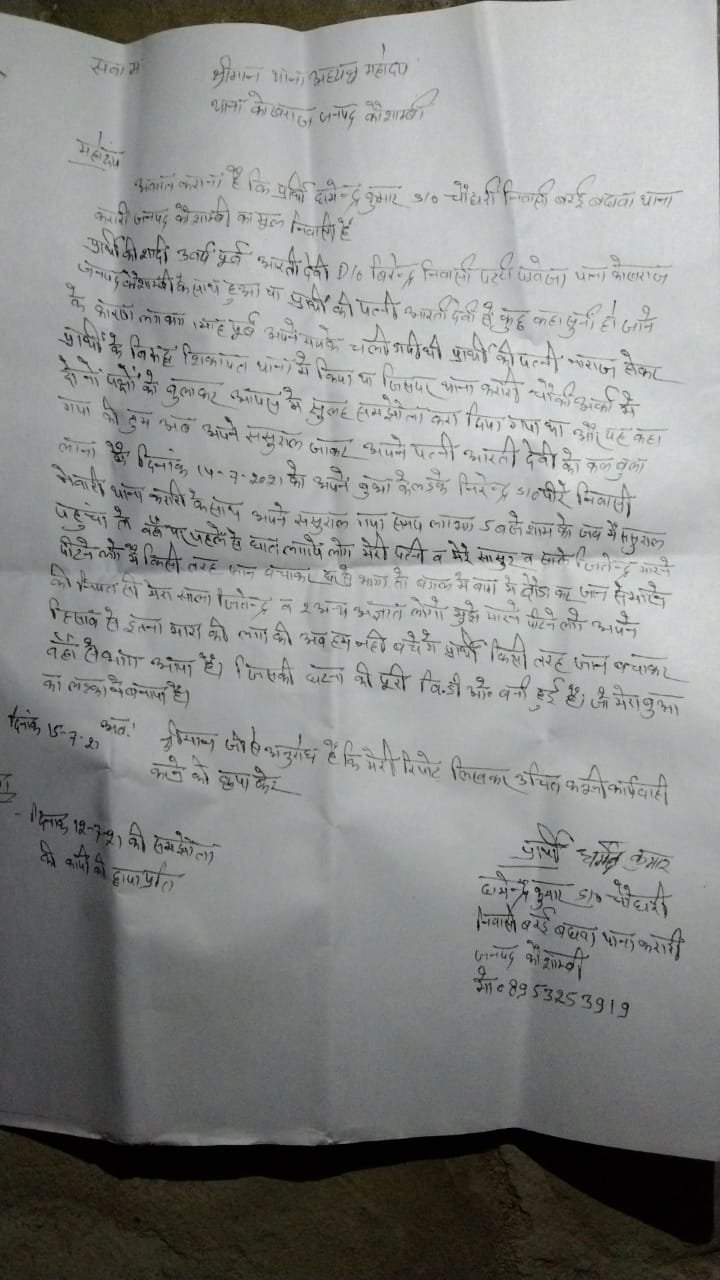 सेवा में
श्रीमान थाना अध्यक्ष महोदय
थाना कोखराज जनपद कौशाम्बी
महोदय
अवगत कराना है कि प्रार्थी धर्मेन्द्र कुमार S/O चौधरी निवासी बरई बधवा थाना
करारी जनपद कौशाम्बी का मूल निवासी है
प्रार्थी की शादी पूर्व आरती देवी D/O बिरेन्द्र निवासी थाना कोखराज
जनपद कौशाम्बी के साथ हुआ था प्रार्थी की पत्नी आरती देवी से कुछ कहा सुनी हो जाने
के कारण लगभग 1 माह पूर्व अपने मायके चली गयी थी प्रार्थी की पत्नी नाराज होकर
प्रार्थी के विरुद्ध शिकायत थाना में किया था जिसपर थाना करारी चौकी में
दोनों पक्षों को बुलाकर आपस में सुलह समझौता करा दिया गया था और यह कहा
गया की तुम अब अपने ससुराल जाकर अपने पत्नी आरती देवी को कल बुला
लाना दिनांक 14-7-2021 को अपने बुआ के लडके S/O निवासी
थाना करारी के साथ अपने ससुराल गया समय लगभग 5 बजे शाम को जब मैं ससुराल
पहुचा तो वहाँ पर पहले से घात लगाये लोग मेरी पत्नी व मेरे सासुर व साले जितेन्द्र मारने
पीटने लगे मैं किसी तरह जान बचाकर भागा तो बगल में बाग में दौडा कर जान से मारने
की नियत से मेरा साला जितेन्द्र व 2 अन्य अज्ञात लोगो मुझे मारने पीटने लगे अपने
हिसाब से इतना मारा की लगा की अब हम नही बचेगे प्रार्थी किसी तरह जान बचाकर
वहाँ से भागा आया है। जिसकी घटना की पूरी वि.डी ओ० बनी हुई है। जो मेरा बुआ
का लडका ने बनाया है।
अतः श्रीमान जी से अनुरोध है कि मेरी रिपोट लिखकर उचित कानूनी कार्यवाही
करने की कृपा करे
दिनांक 15-7-21
दिनांक 12-7-21 की समझौता
की कापी की छाया प्रति
प्रार्थी धर्मेन्द्र कुमार
धर्मेन्द्र कुमार S/O चौधरी
निवासी बरई बधवा थाना करारी
जनपद कौशाम्बी
मो० 8953253919